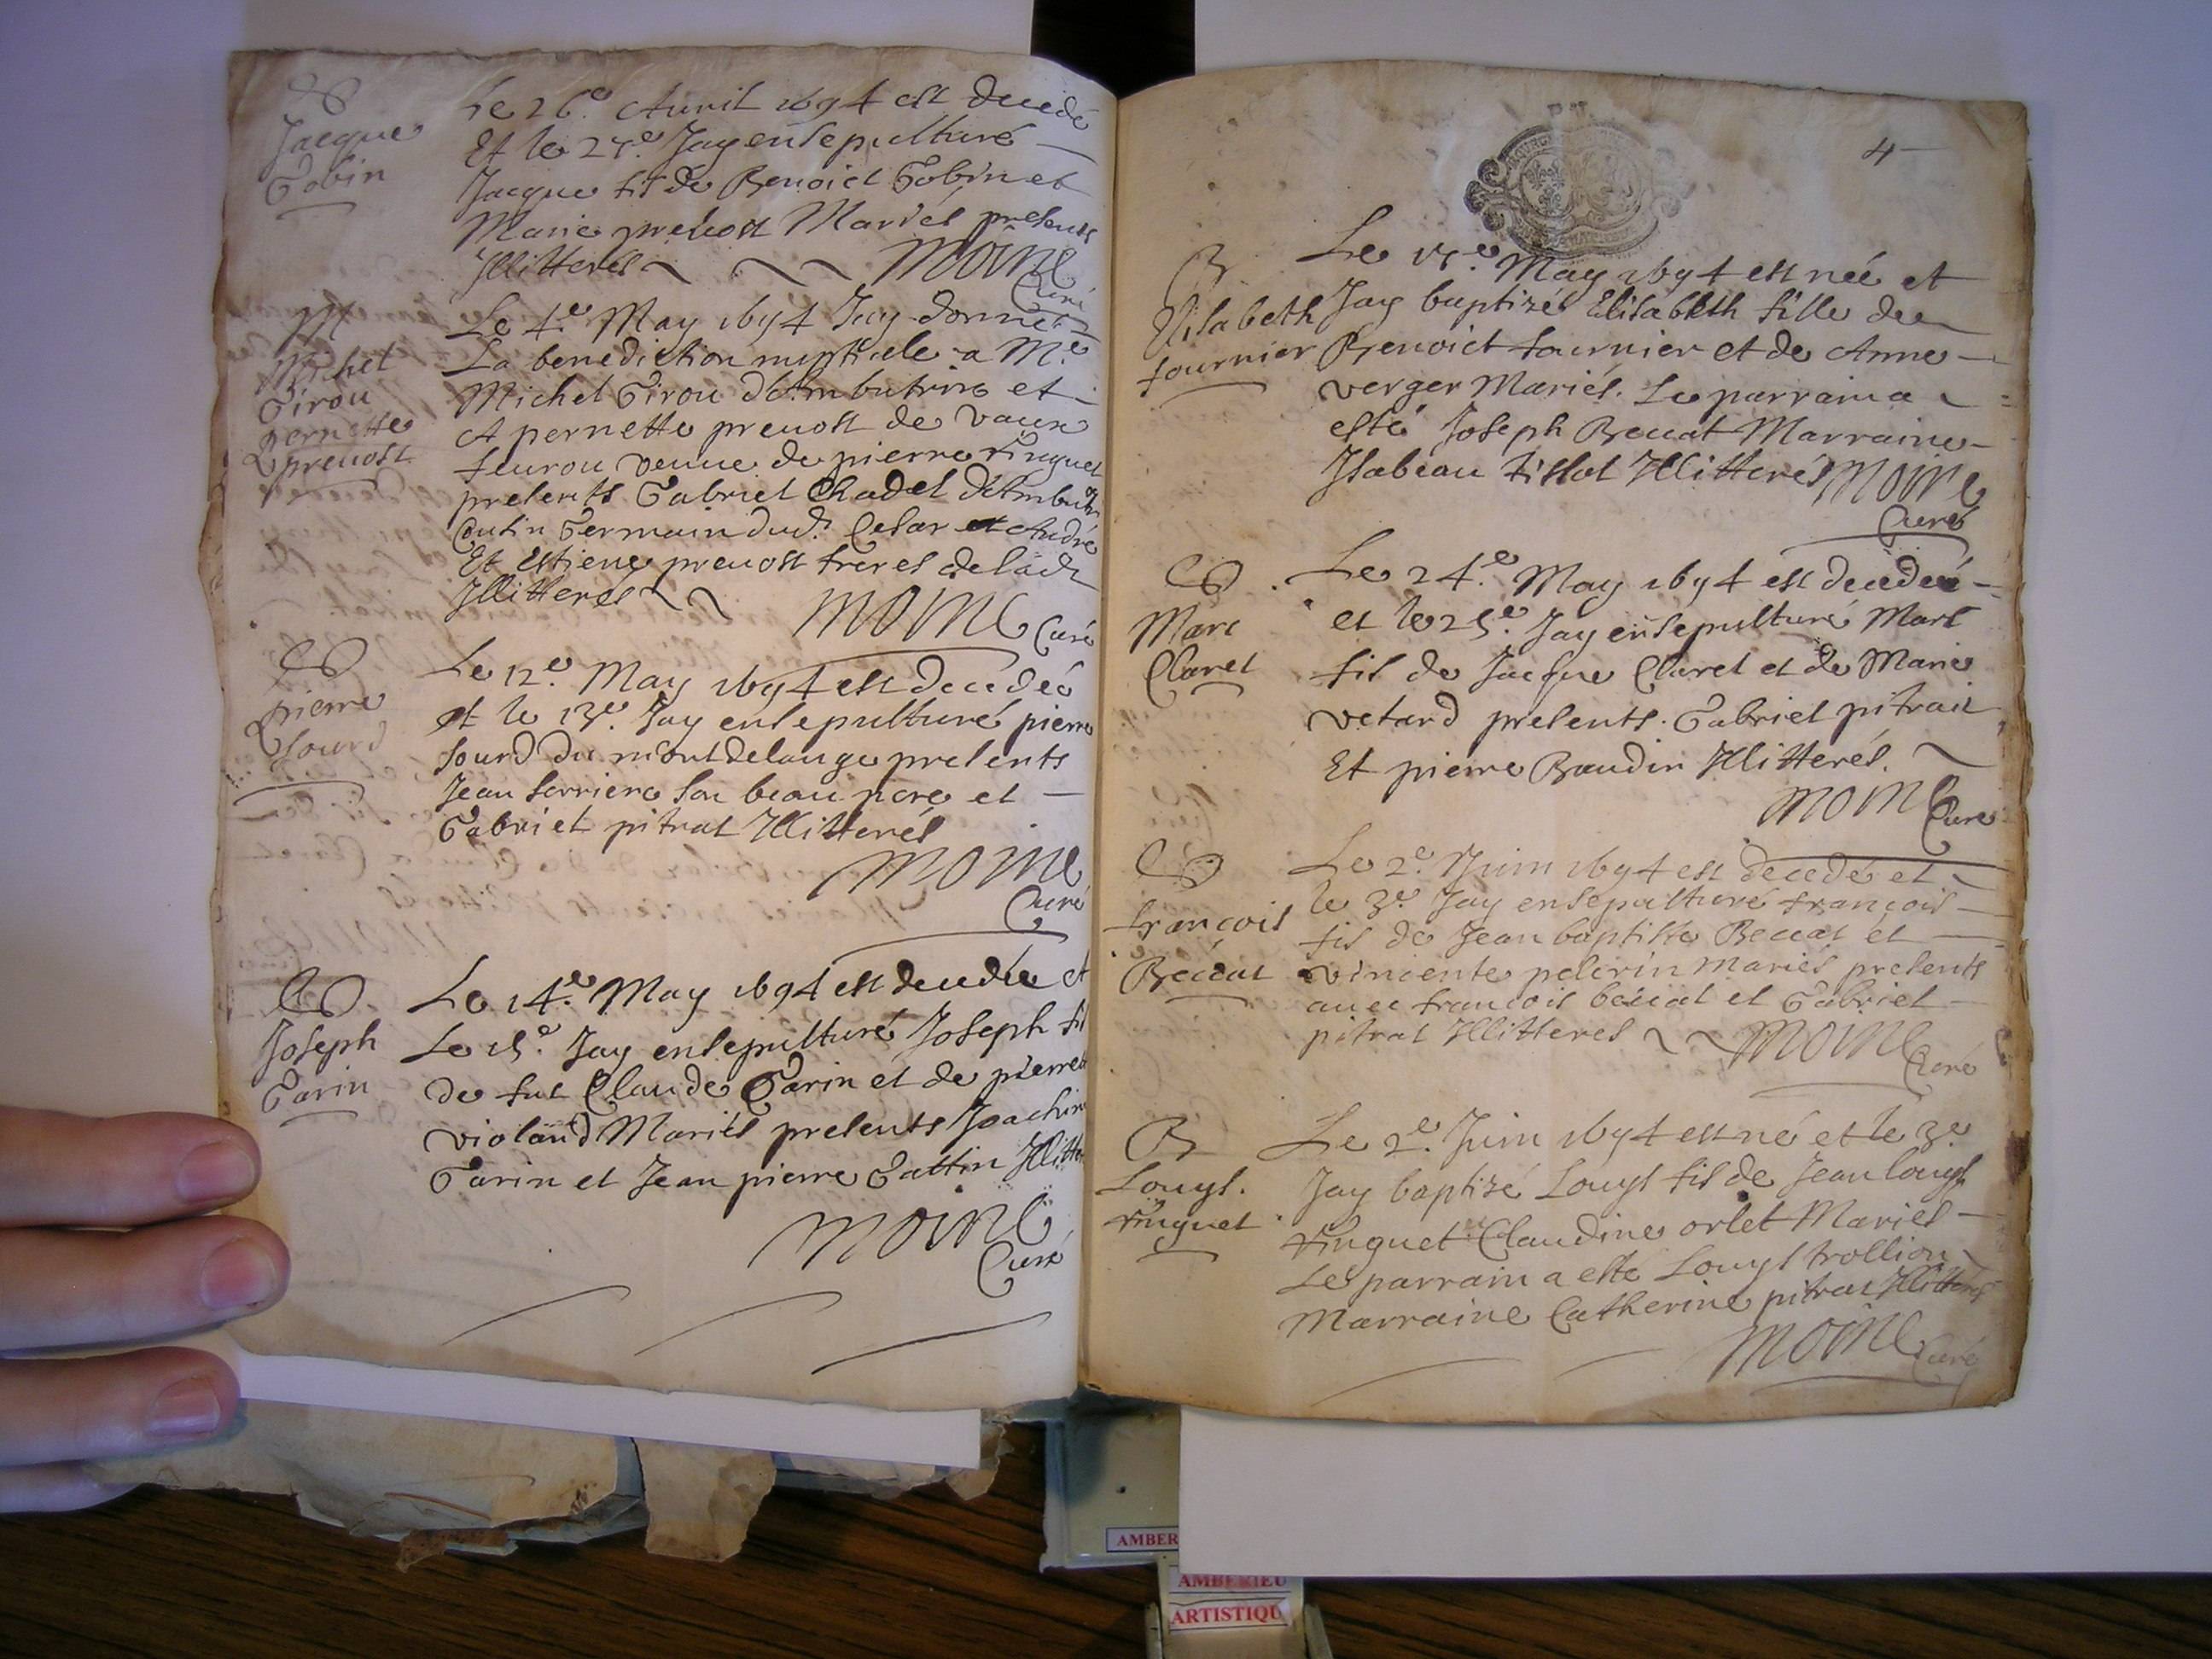 Jacque
Gobin
Le 26.e Auril 1694 est decedé
Et le 27.e Jay ensepulturé
Jacque fils de Benoict Gobin et
Marie preuost Mariés presents
Illitterés
Moine
Curé
M
Michel
Girou
pernette
preuost
Le 4.e May 1694 Jay donné
La benediction nuptiale a M.e
Michel Girou dAmbutrix et
A pernette preuost de vaux
feurou veuue de pierre finguet
presents Gabriel Chadel dAmbutr
Cousin Germain dud. Cesar et André
Et Estiene preuost freres de lad
Illitterés
Moine Curé
pierre
Sourd
Le 12.e May 1694 est decedé
et le 13.e Jay ensepulturé pierre
Sourd du montdelange presents
Jean ferriere son beau pere et
Gabriel pitrat Illitterés
Moine
Curé
Joseph
Garin
Le 14.e May 1694 est decedé et
Le 15.e Jay ensepulturé Joseph fil
de fut Claude Garin et de pierrett
violand Mariés presents Joachin
Garin et Jean pierre Gattin Illitte
Moine
Curé
4
B
Elisabeth
fournier
Le 15.e May 1694 est née et
Jay baptizé Elisabeth fille de
Benoict fournier et de Anne
verger Mariés. Le parrain a
esté Joseph Beccat Marraine
Isabeau tissot Illitterés Moine
Curé
Marc
Claret
Le 24.e May 1694 est decedé
et le 25.e Jay ensepulturé Marc
fils de Jacque Claret et de Marie
vetard presents. Gabriel pitrat
Et pierre Baudin Illitterés.
Moine Curé
françois
Beccat
Le 2.e Juin 1694 est decedé et
le 3.e Jay ensepulturé françois
fils de Jean baptiste Beccat et
viniente pelerin Mariés presents
auec françois beccat et Gabriel
pitrat Illitterés Moine
Curé
B
Louys.
finguet
Le 2.e Juin 1694 est né et le 3.e
Jay baptizé Louys fils de Jean louys
finguet Claudine orset Mariés
Le parrain a esté Louys trollion
Marraine Catherine pitrat Illitterés
Moine Curé
AMBER
AMBERIEU
ARTISTIQU